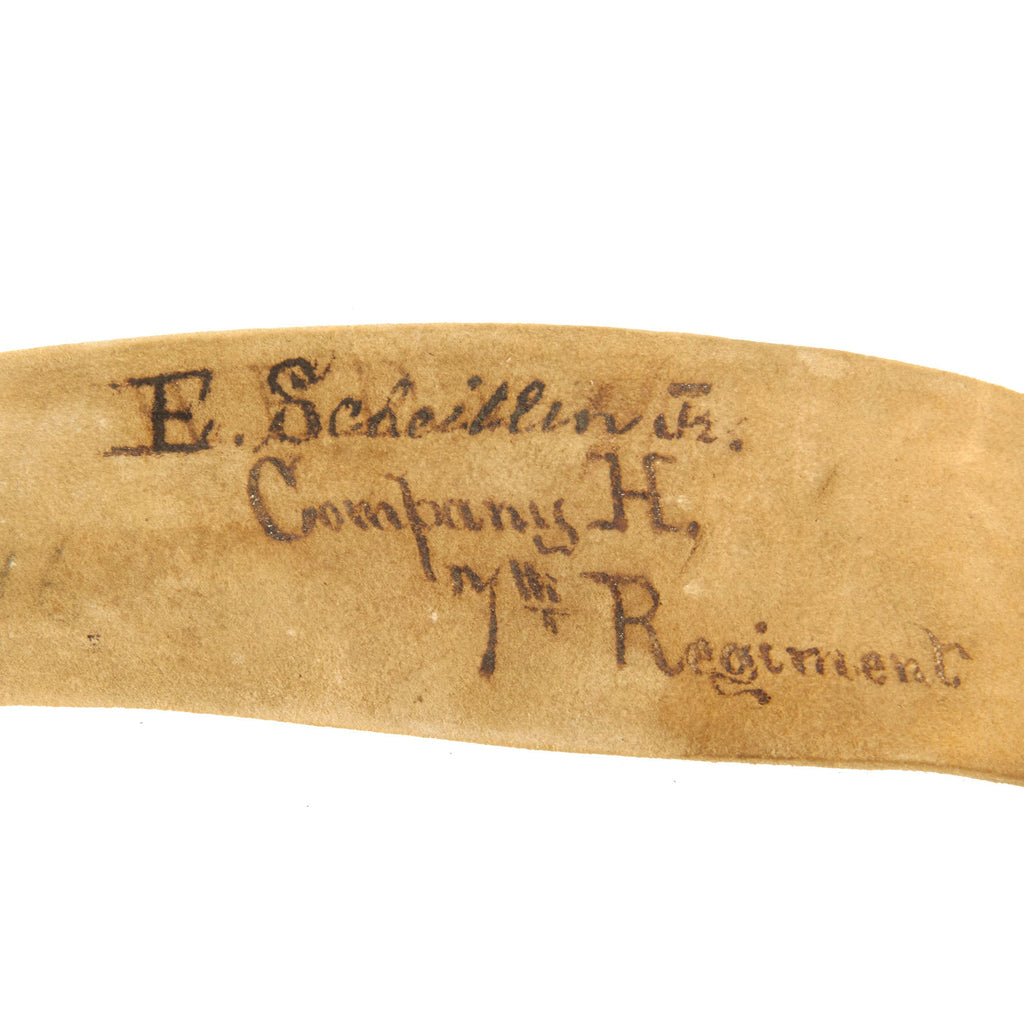 E. Scheitlin Jr.
Company H,
7th Regiment